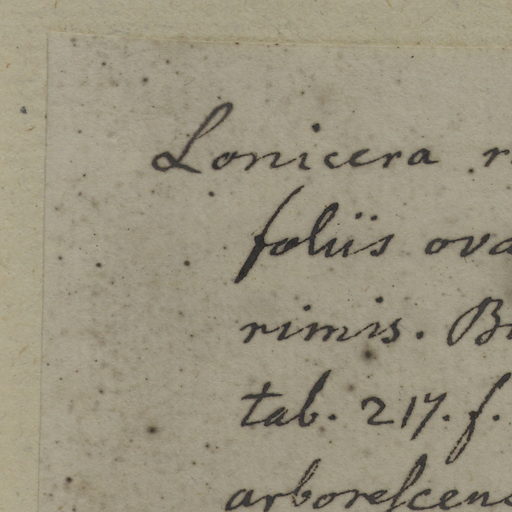 Lonicera
foliis ova
rimis. B
tab. 217. f.
arboreſcen